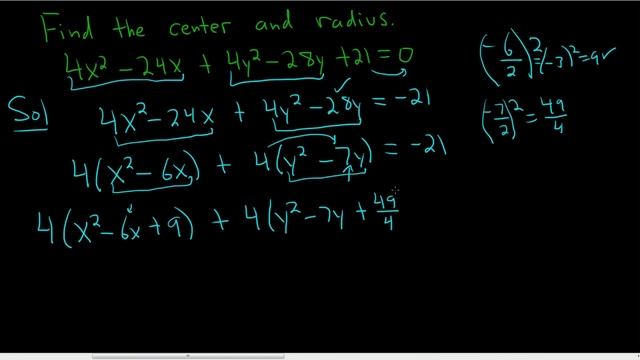 Find the center and radius.
4x² - 24x + 4y² - 28y + 21 = 0
Sol 4x² - 24x + 4y² - 28y = -21
4(x² - 6x) + 4(y² - 7y) = -21
4(x² - 6x + 9) + 4(y² - 7y + 49/4
(-6/2)² = (-3)² = 9
(-7/2)² = 49/4